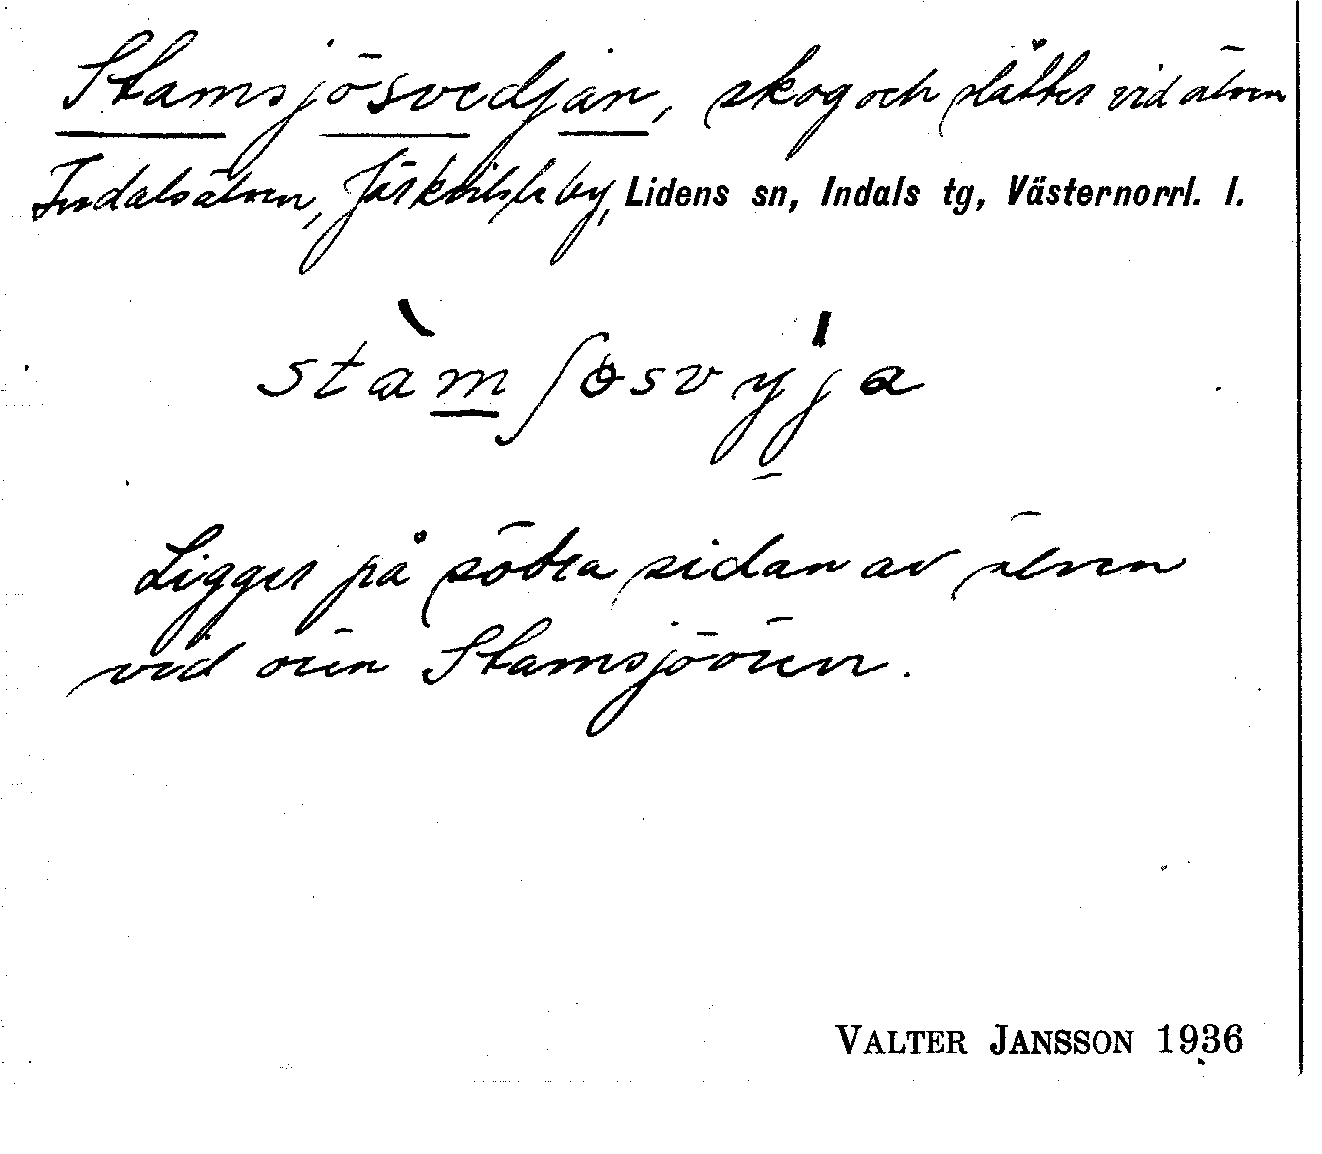 Stamsjösvedjan, skog och slåtter vid älven
Indalsälven, Järkvitsle by, Lidens sn, Indals tg, Västernorrl. l.
stàmʃɵsvyja
Ligger på södra sidan av älven
vid ören Stamsjöören.
VALTER JANSSON 1936